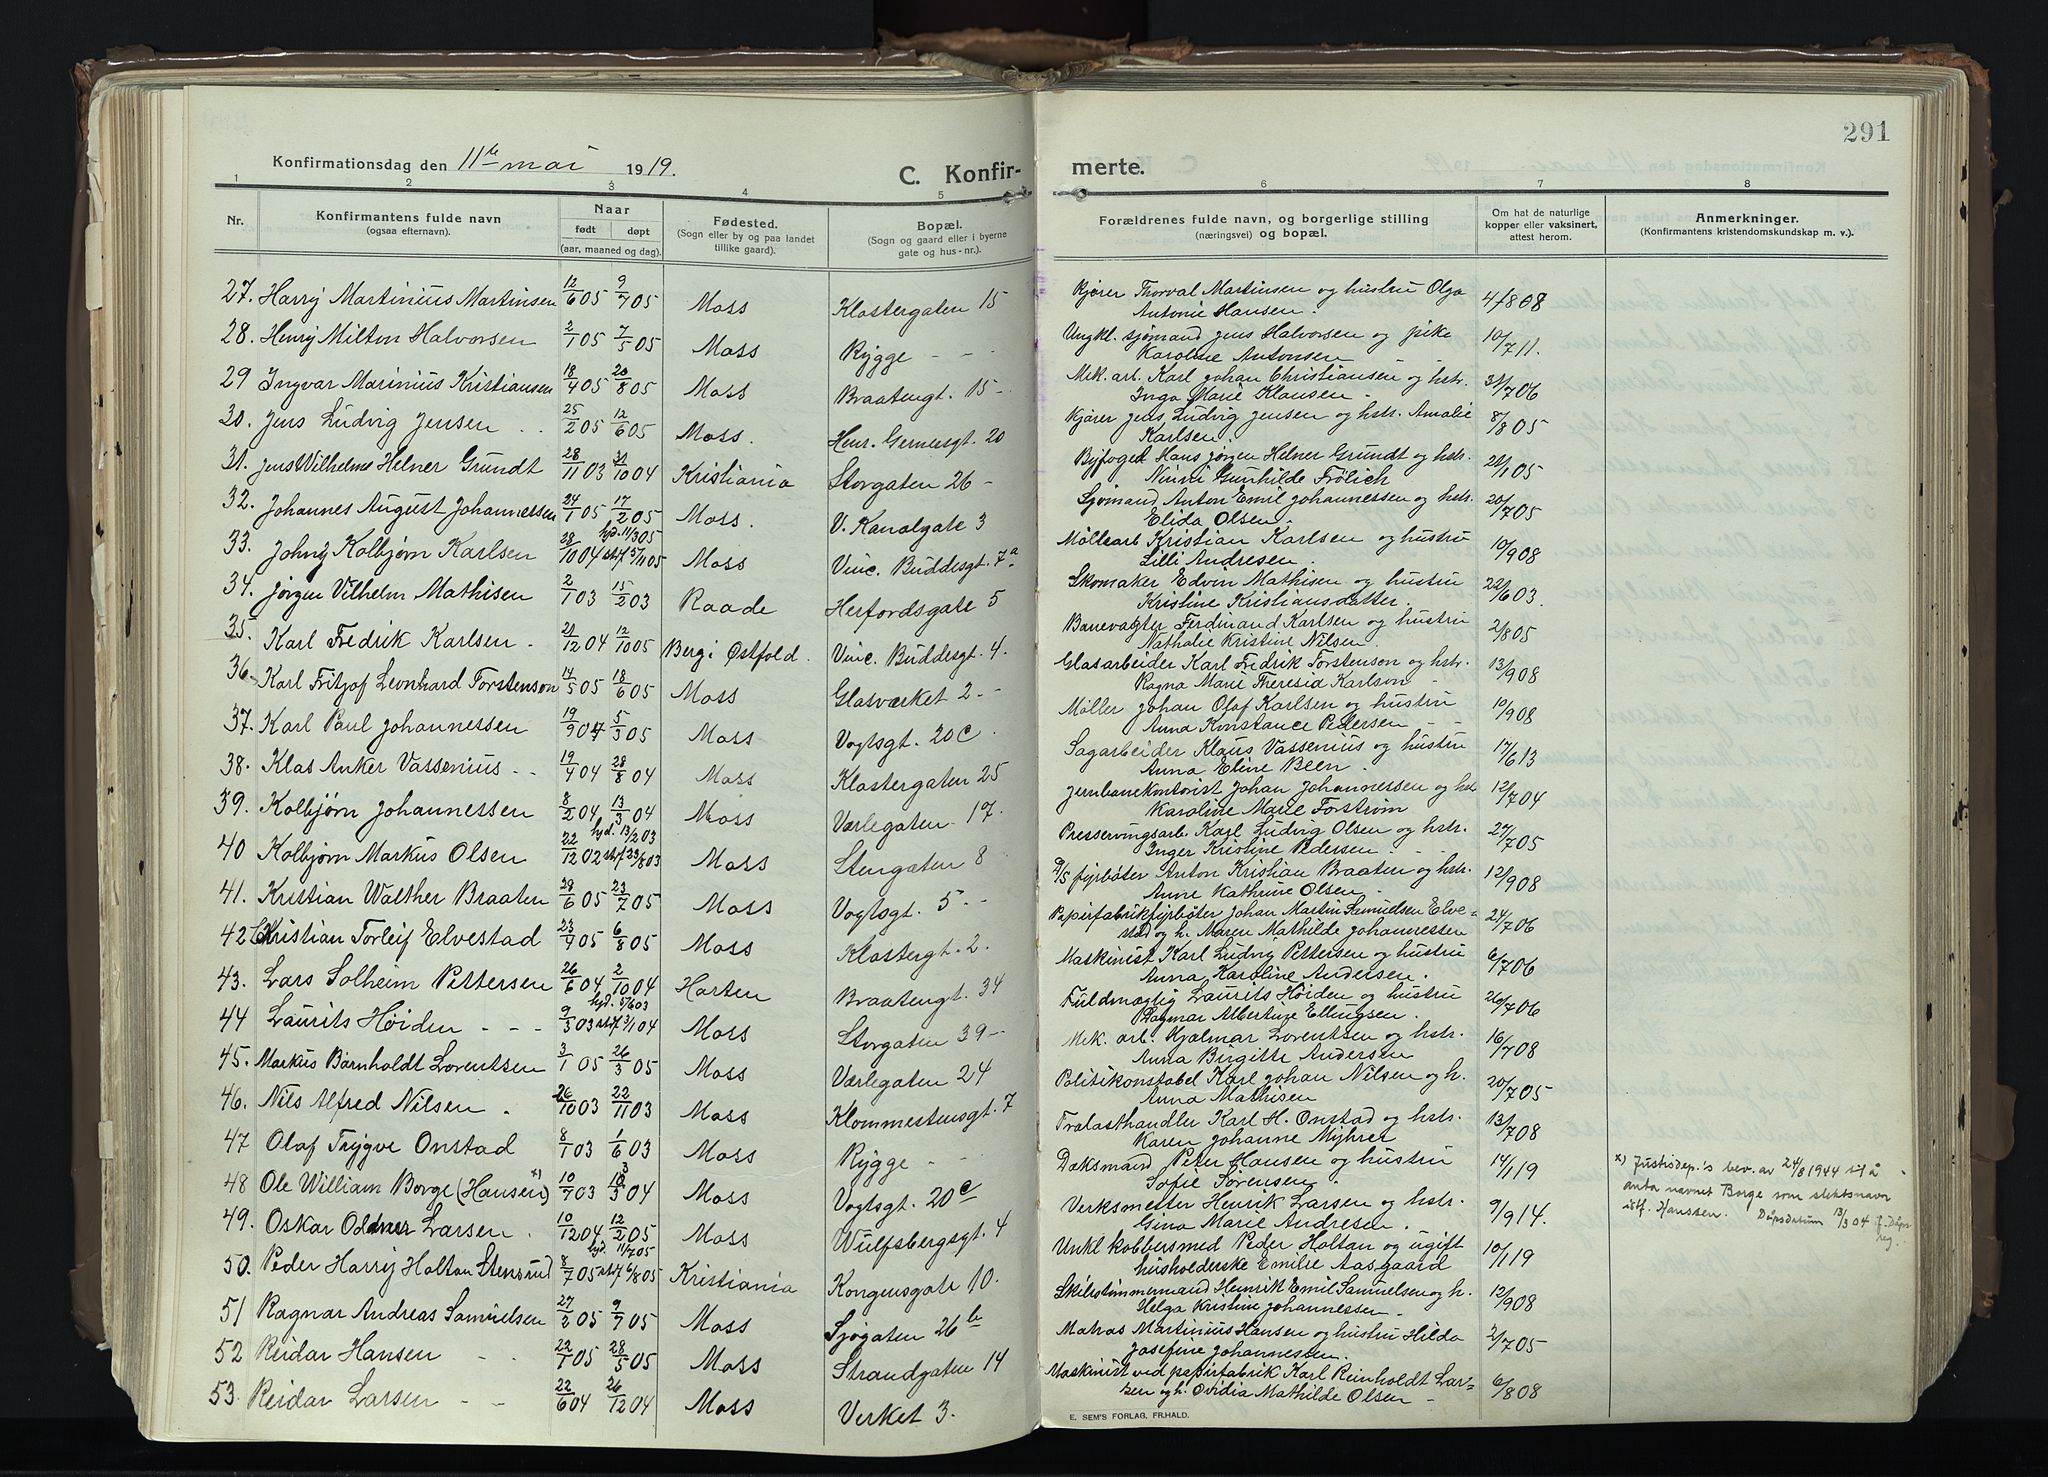 291
Konfirmationsdag den 11te mai 1919.
C. Konfir-
merte.
1 2 3 4 5 6 7 8
Nr.
Konfirmantens fulde navn
(ogsaa efternavn).
Naar
født døpt
(aar, maaned og dag).
Fødested.
(Sogn eller by og paa landet
tillike gaard).
Bopæl.
(Sogn og gaard eller i byerne
gate og hus-nr.).
Forældrenes fulde navn, og borgerlige stilling
(næringsvei) og bopæl.
Om hat de naturlige
kopper eller vaksinert,
attest herom.
Anmerkninger.
(Konfirmantens kristendomskundskap m. v.).
27. Harry Martinius Martinsen 12/6 05 9/7 05 Moss Klostergaten 15 Kjører Thorval Martinsen og hustru Olga 4/8 08
Antonie Hansen.
28. Henry Milton Halvorsen 2/1 05 7/5 05 Moss Rygge - - Ungkl. sjømand Jens Halvorsen og pike 10/7 11.
Karoline Antonsen
29 Ingvar Marinius Kristiansen 18/4 05 20/8 05 Moss Braatengt. 15 - Mek. arb. Karl Johan Christiansen og hstr. 31/7 06
Inga Marie Klausen -
30. Jens Ludvig Jensen 25/2 05 12/6 05 Moss. Henr. Gernersgt. 20 Kjører Jens Ludvig Jensen og hstr. Amalie 8/8 05
Karlsen.
31. Jens Wilhelm Helner Grundt 28/11 03 31/10 04 Kristiania Storgaten 26 - Byfoged Hans Jørgen Helner Grundt og hstr. 22/1 05
Ninni Gunhilde Frölich
32. Johannes August Johannessen 24/1 05 17/2 05 Moss. V. Kanalgate 3 Sjømand Anton Emil Johannessen og hstr. 20/7 05
Elida Olsen -
33. Johny Kolbjørn Karlsen 28/10 04 hjd. 11/3 05 stf 5/11 05 Moss Vinc. Buddesgt. 7a Møllearb Kristian Karlsen og hustru 10/9 08
Lilli Andresen.
34. Jørgen Vilhelm Mathisen 2/1 03 15/2 03 Raade Herfordsgate 5 Skomaker Edvin Mathisen og hustru 22/6 03.
Kristine Kristiansdatter.
35. Karl Fredrik Karlsen - 21/12 04 12/10 05 Berg i Østfold. Vinc. Buddesgt. 4. Banevagter Ferdinand Karlsen og hustru 2/8 05
Nathalie Kristine Nilsen.
36. Karl Fritjof Leonhard Torstenson 14/5 05 18/6 05 Moss Glasverket 2 - - Glasarbeider Karl Fredrik Torstenson og hstr. 13/9 08
Ragna Marie Theresia Karlson -
37. Karl Paul Johannessen 19/9 04 5/3 05 Moss Vogtsgt. 20c Møller Johan Olaf Karlsen og hustru 10/9 08
Anna Konstance Pettersen - -
38. Klas Anker Vassenius - - 19/4 04 28/8 04 Moss Klostergaten 25 Sagarbeider Klaus Vassenius og hustru 17/6 13
Anna Eline Been.
39. Kolbjørn Johannessen 8/2 04 13/3 04 Moss Værlegaten - 17. Jernbanekontorist Johan Johannessen og hstr 12/7 04
Karoline Marie Forstrøm
40 Kolbjørn Markus Olsen 22/12 02 hjd. 13/2 03 stf 23/8 03 Moss Stengaten 8 Presservingsarb. Karl Ludvig Olsen og hstr. 27/7 05
Inger Kristine Pedersen - -
41. Kristian Walther Braaten 28/6 05 23/7 05 Moss Vogtsgt. 5 - - D/S fyrbøter Anton Kristian Braaten og hstr. 12/9 08
Anne Kathrine Olsen
42 Christian Torleif Elvestad 23/4 05 6/8 05 Moss Klostergt. 2. Papirfabrikfyrbøter Johan Martin Samuelsen Elve- 24/7 06
stad og h. Maren Mathilde Johannessen
43. Lars Solheim Pettersen 26/6 04 2/10 04 Horten Braatengt. 34 Maskinist Karl Ludvig Pettersen og hustru 6/7 06
Anna Karoline Andersen.
44 Laurits Høiden - - - 9/3 03 hjd. 5/6 03 stf 3/1 04 Moss Storgaten 39 - Fuldmægtig Laurits Høiden og hustru 26/7 06
Dagmar Albertine Ellingsen.
45. Markus Barnholdt Lorentsen 3/1 05 26/3 05 Moss Værlegaten 24 Mek. arb. Hjalmar Lorentsen og hstr. 16/7 08
Anna Birgitte Andersen
46. Nils Alfred Nilsen . 26/10 03 22/11 03 Moss Klommestensgt. 7 Politikonstabel Karl Johan Nilsen og h. 20/7 05
Anna Mathisen
47 Olaf Trygve Onstad 8/1 03 1/6 03 Moss Rygge - - Trælasthandler Karl H. Onstad og hstr. 13/7 08
Karen Johanne Myhrer
48 Ole William Borge (Hansen) x) 10/7 03 13/3 04 Moss Vogtsgt. 20c Dæksmand Peter Hansen og hustru 14/1 19
Sofie Sørensen.
x) Justisdep.'s bev. av 24/8 1944 til å
anta navnet Borge som slektsnavn
istf. Hanssen. Dåpsdatum 13/3 04 jf. Dåps-
reg.
49. Oskar Oldner Larsen. 10/12 04 12/2 05 Moss Wulfsbergsgt. 4 Verksmester Henrik Larsen og hstr. 9/9 14.
Gina Marie Andresen.
50. Peder Harry Holtan Stensrud 8/7 05 hjd. 11/7 05 stf 6/8 05 Kristiania Kongensgate 10. Unkl kobbersmed Peder Holtan og ugift 10/1 19
husholderske Emilie Aasgaard
51 Ragnar Andreas Samuelsen 27/2 05 9/7 05 Moss Sjøgaten 26b Skibstømmermand Henrik Emil Samuelsen og h. 12/9 08
Helga Kristine Johannessen -
52 Reidar Hansen - - 22/1 05 28/5 05 Moss Strandgaten 14 Matros Martinius Hansen og hustru Hilda 2/7 05
Josefine Johannessen.
53. Reidar Larsen - - 22/6 04 26/12 04 Moss Verket 3. Maskinist ved papirfabrik Karl Reinholdt Lar- 6/8 08
sen og h. Ovidia Mathilde Olsen -
E. SEM'S FORLAG, FR.HALD.